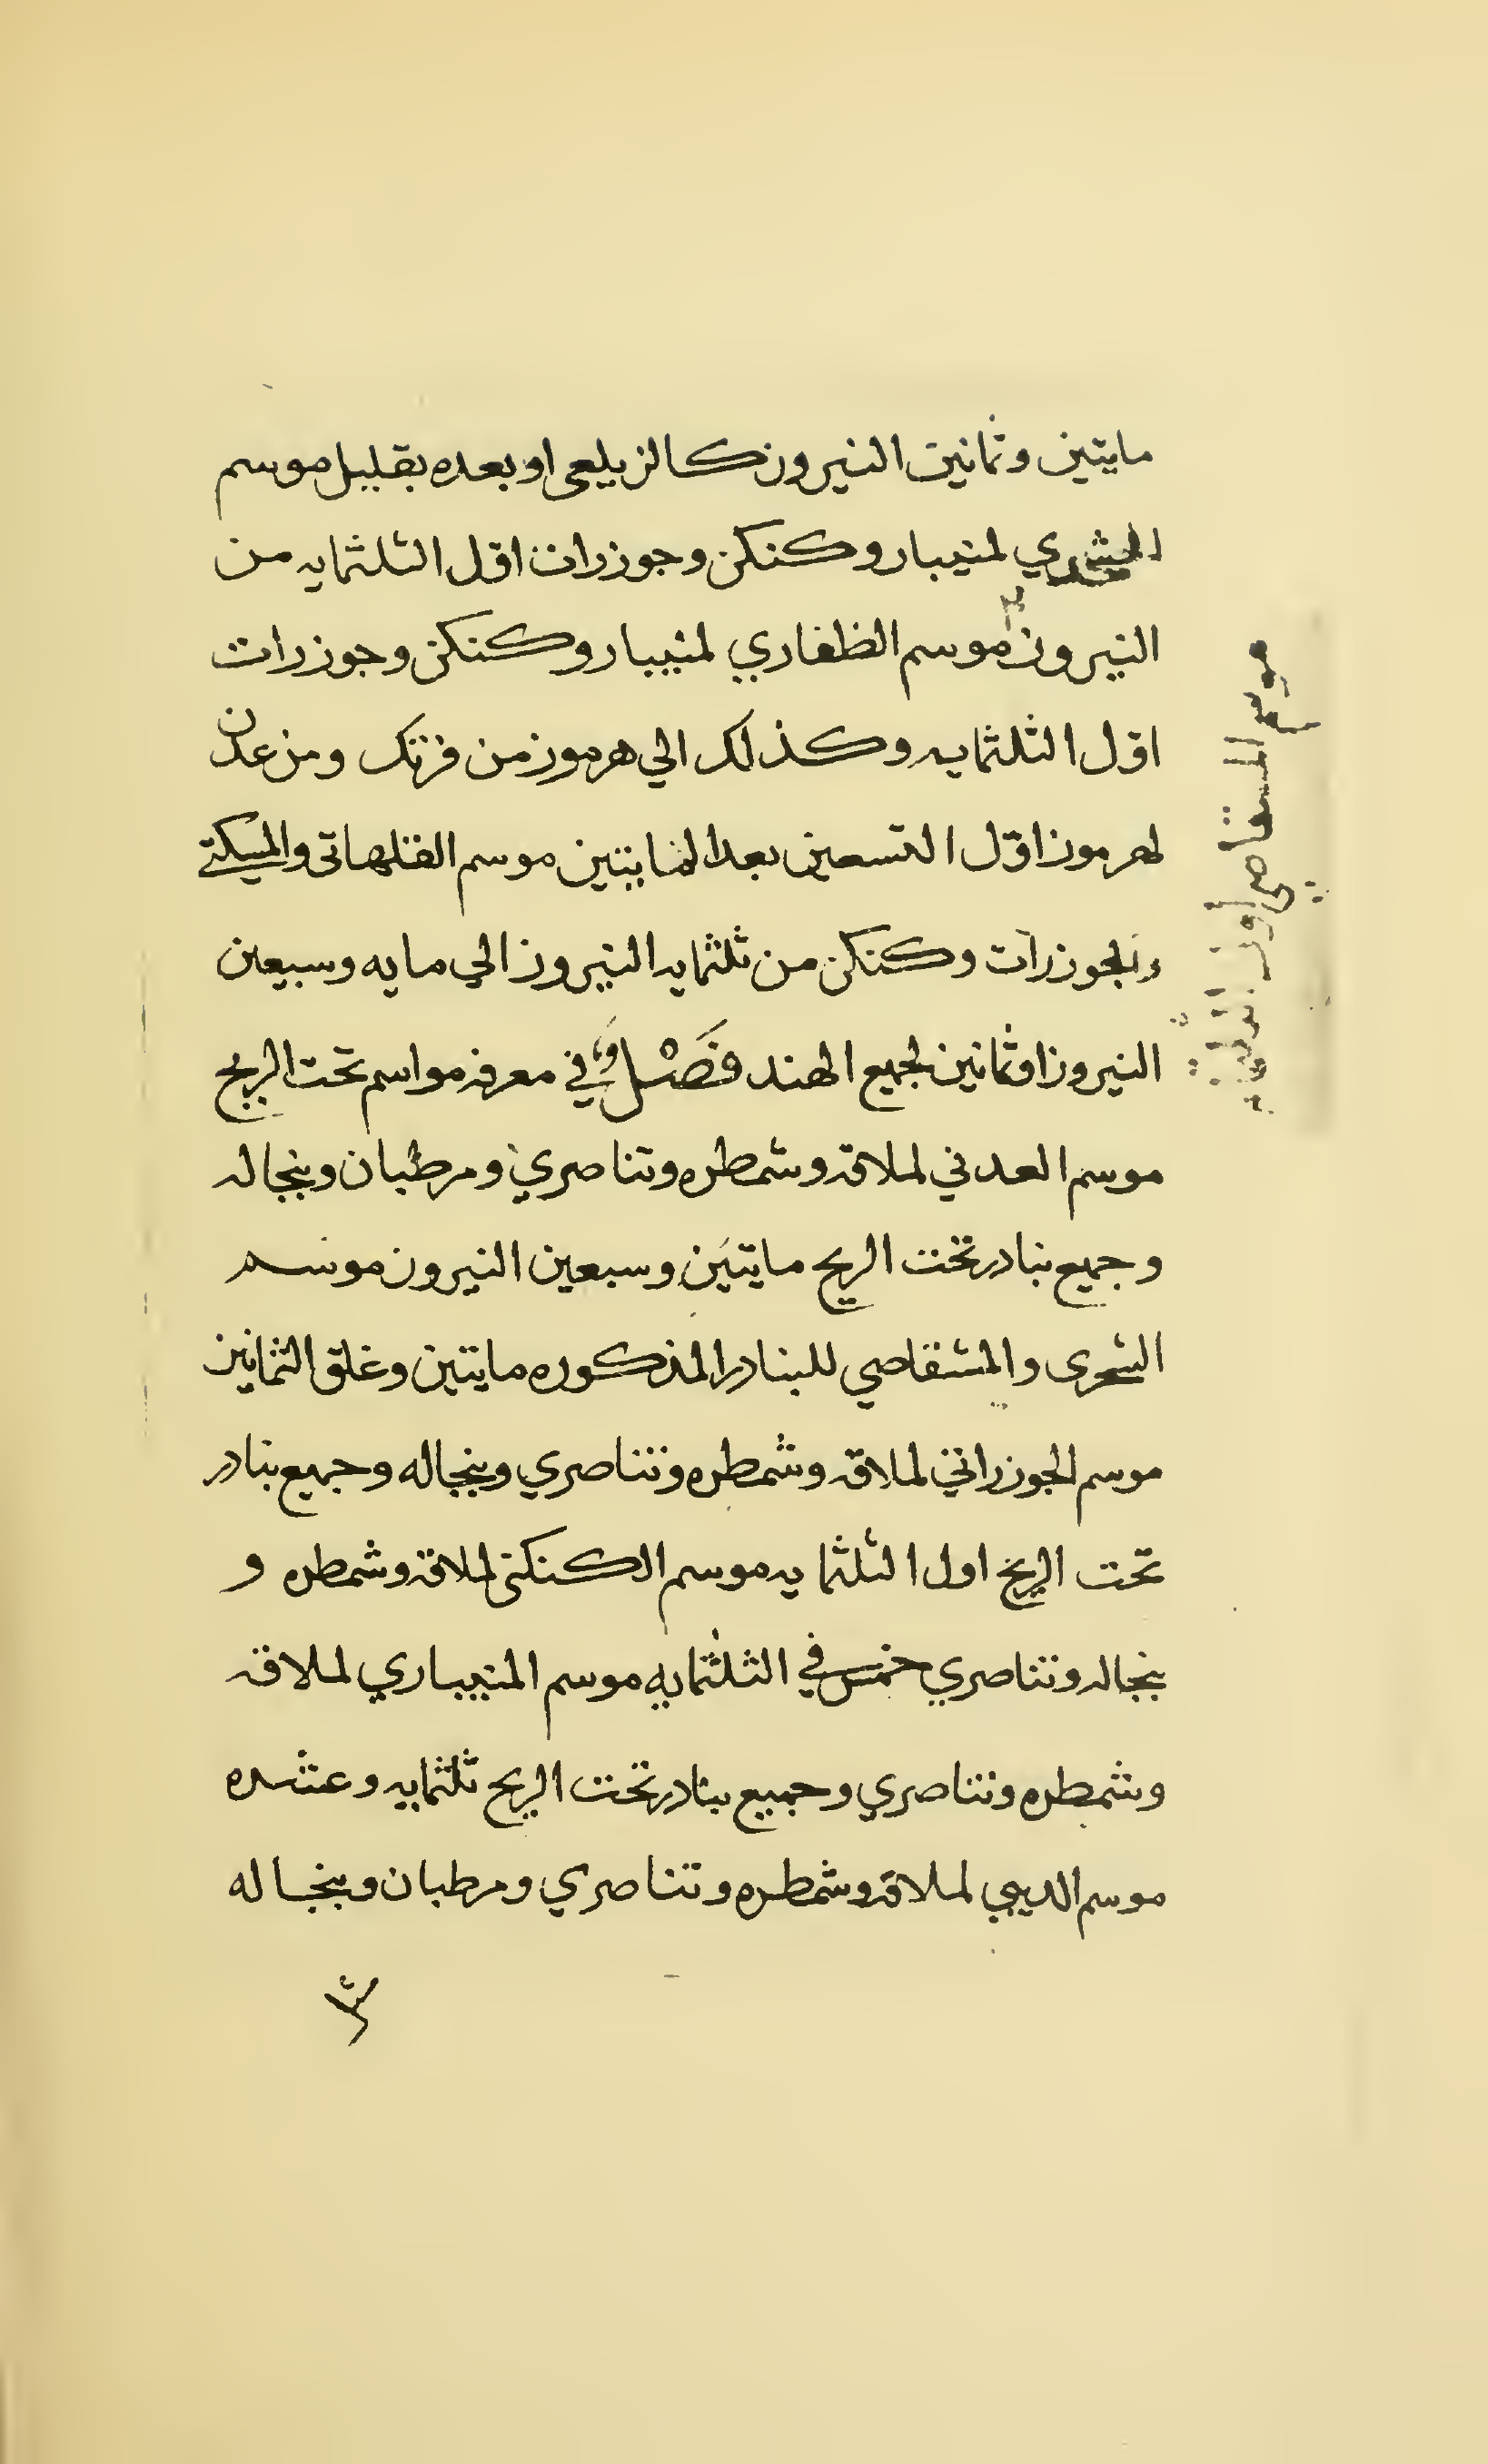 مايتين وثمانين النيروز كالزيلعي او بعده بقليل موسم
الشحري لمنيبار وكنكن وجوزرات اول الثلثمايه من
النيروز موسم الظفاري لمنيبار وكنكن وجوزرات
اول الثلثمايه وكذلك الي هرموز من فرتك ومن عدن
لهرموز اول التسعين بعد المايتين موسم القلهاتي والمسكتي
لجوزرات وكنكن من ثلثمايه النيروز الي مايه وسبعين
النيروز او ثمانين لجميع الهند فَصْل في معرفه مواسم تحت الريح
موسم العدني لملاقه وشمطره وتناصري ومرطبان وبنجاله
وجميع بنادر تحت الريح مايتين وسبعين النيروز موسم
الشحرى والمشقاصي للبنادر المذكوره مايتين وغلق الثمانين
موسم الجوزراتي لملاقه وشمطره وتناصري وبنجاله وجميع بنادر
تحت الريح اول الثلثمايه موسم الكنكني لملاقه وشمطره و
بنجاله وتناصري خمس في الثلثمايه موسم المنيباري لملاقه
وشمطره وتناصري وجميع بنادر تحت الريح ثلثمايه وعشره
موسم الديبي لملاقه وشمطره وتناصري ومرطبان وبنجاله
موسم المشقاصي اول الثلثمايه